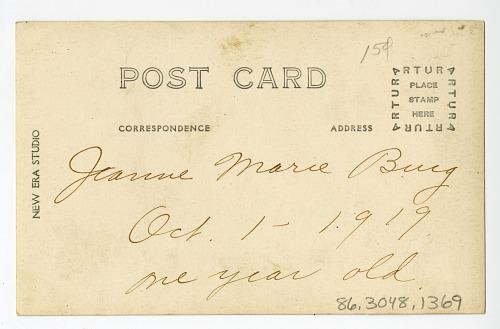 15¢
POST CARD
ARTURA
ARTURA
PLACE
STAMP
HERE
ARTURA
ARTURA
CORRESPONDENCE
ADDRESS
NEW ERA STUDIO
Jeanne Marie Burg
Oct. 1 - 1919
one year old
86.3048.1369